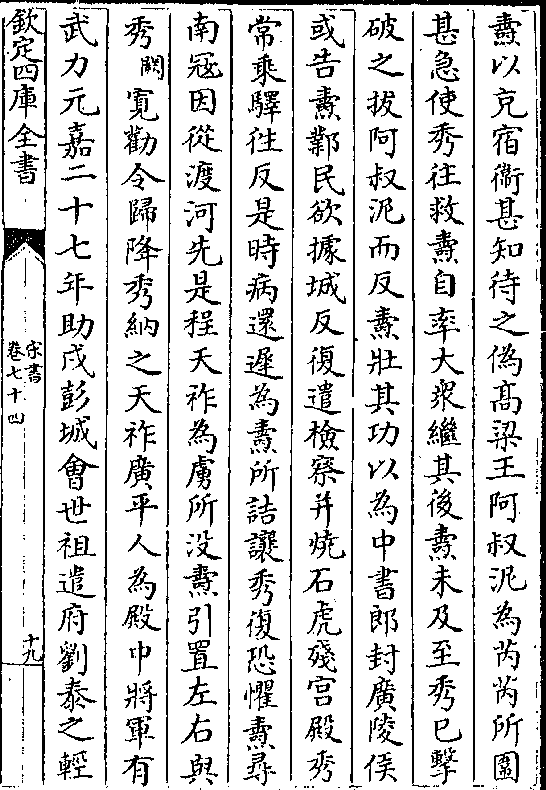 燾以克宿衞甚知待之偽髙梁王阿叔泥為芮芮所圍
甚急使秀往救燾自率大衆繼其後燾未及至秀已擊
破之拔阿叔泥而反燾壯其功以為中書郎封廣陵侯
或告燾鄴民欲據城反復遣檢察并燒石虎殘宫殿秀
常乘驛往反是時病還遲為燾所詰讓秀復恐懼燾尋
南冦因從渡河先是程天祚為虜所没燾引置左右與
秀闕寛勸令歸降秀納之天祚廣平人為殿中將軍有
武力元嘉二十七年助戍彭城會世祖遣府劉泰之輕
欽定四庫全書
宋書
卷七十四
十九